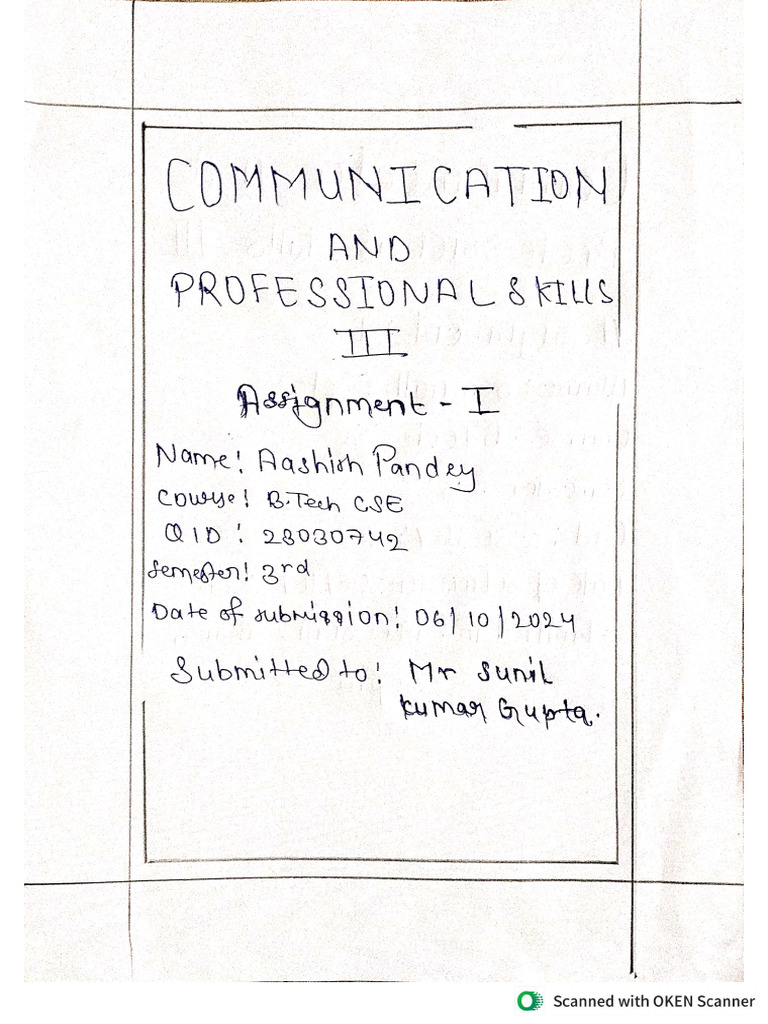 COMMUNICATION
AND
PROFESSIONAL SKILLS
III
Assignment - I
Name: Aashish Pandey
Course: B.Tech CSE
QID: 23030742
Semester: 3rd
Date of submission: 06/10/2024
Submitted to: Mr Sunil
Kumar Gupta.
Scanned with OKEN Scanner